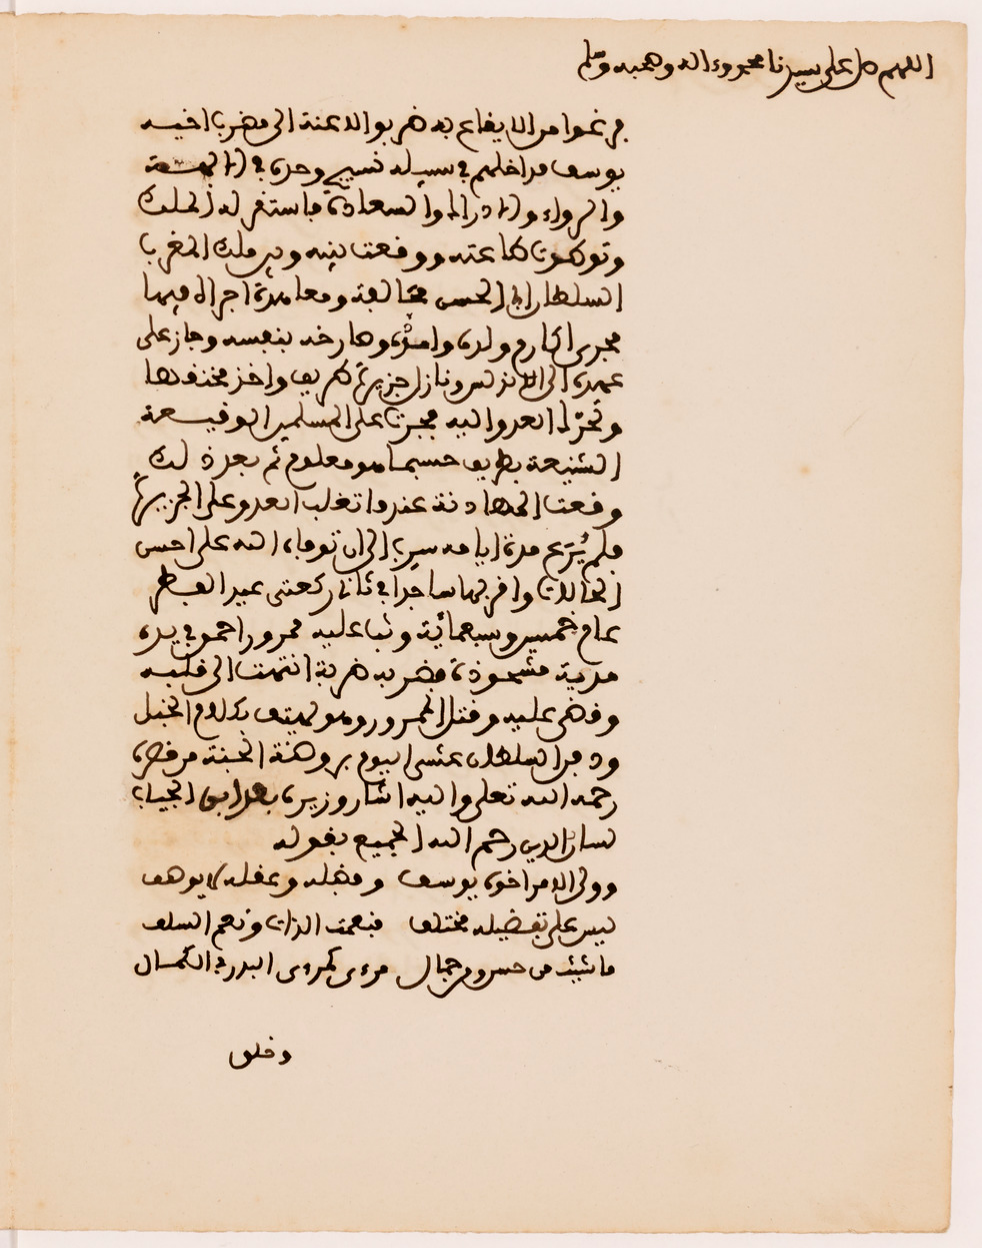 اللهم صل على سيدنا محمد وءاله وصحبه وسلم
فرغوا من الايقاع به ضربوا الاعنة الى مضرب اخيه
يوسف فدخلهم في سبيله نسيج وحده في
والرواء والادراك والسعادة فاستقر له الملك
وتوكدت طاعته ووقعت بينه وبين ملك المغرب
السلطان ابي الحسن مخالفة ومعاهدة اجراه فيها
مجرى اكارم ولده وامده وصارخه بنفسه وجاز على
عهده الى الاندلس ونازل جزيرة طريف واخذ مخنقها
وتحرك العدو اليه فجرت على المسلمين الوقيعة
الشنيعة بطريف حسبما هو معلوم ثم بعد ذلك
وقعت المهادنة عندما تغلب العدو على الجزيرة
فلم يُرَع مدة ايامه سرب الى ان توفاه الله على احسن
الحالات واقربها ساجدا في ثانى ركعتى عيد الفطر
عام خمسين وسبعمائة وثبا عليه ممرور احمق بيده
مدية مشحوذة فضربه ضربة انتهت الى قلبه
وقضى عليه وقتل الممرور وهو لهيتف بكلام الخبل
ودفن السلطان عشى اليوم بروضة الجنة من قصره
رحمه الله تعلى واليه اشار وزيره بعد ابن الجياب
لسان الدين رحم الله الجميع بقوله
وولى الامر اخوه يوسف   وفضله وعقله لا يوصف
ليس على تفضيله مختلف   فنعمت الذات ونعم السلف
ما شئت من حسن ومن جمال   مرءى كمرءى البدر في الكمال
وخلق